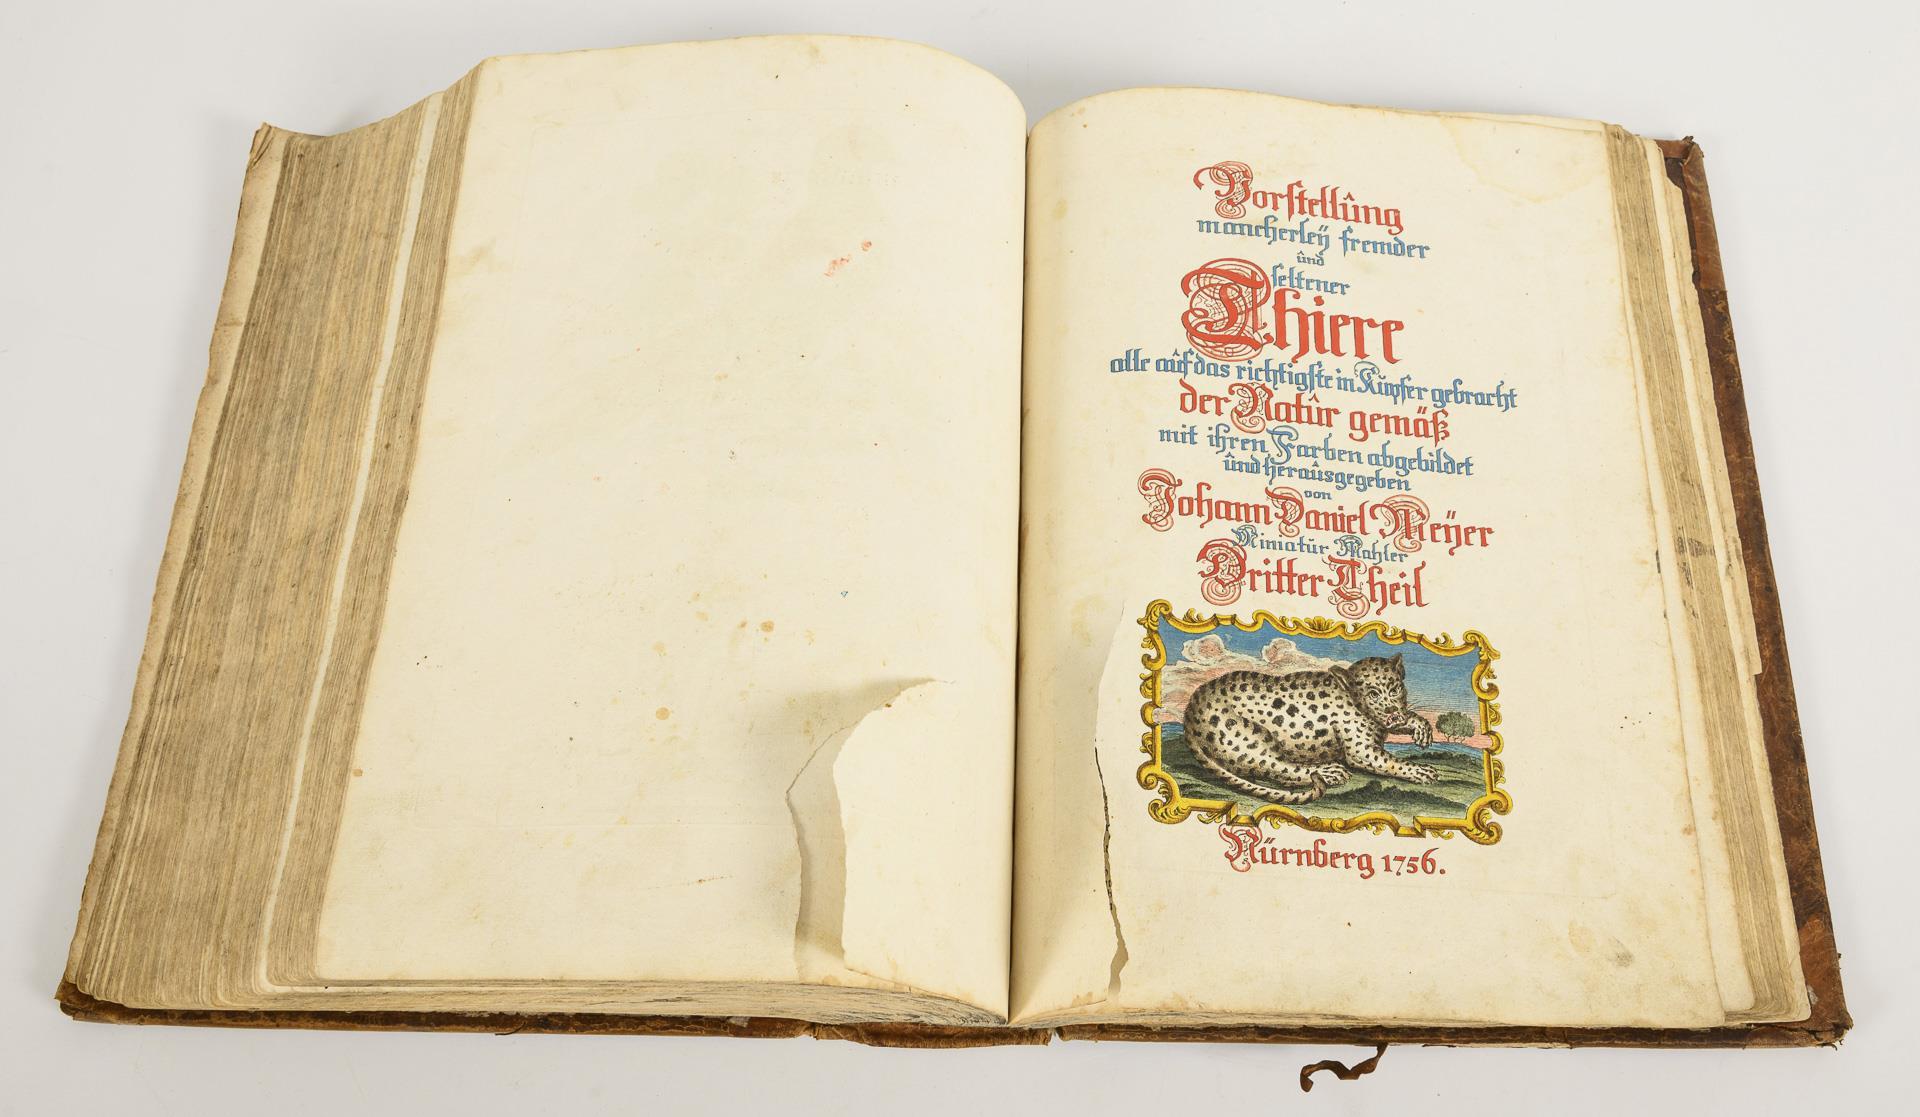 Vorstellûng
mancherleÿ fremder
ûnd
seltener
Thiere
alle aûf das richtigste in Kûpfer gebracht
der Natûr gemäß
mit ihren Farben abgebildet
ûnd heraûsgegeben
von
Johann Daniel Meÿer
Miniatûr Mahler
Dritter Theil
Nürnberg 1756.